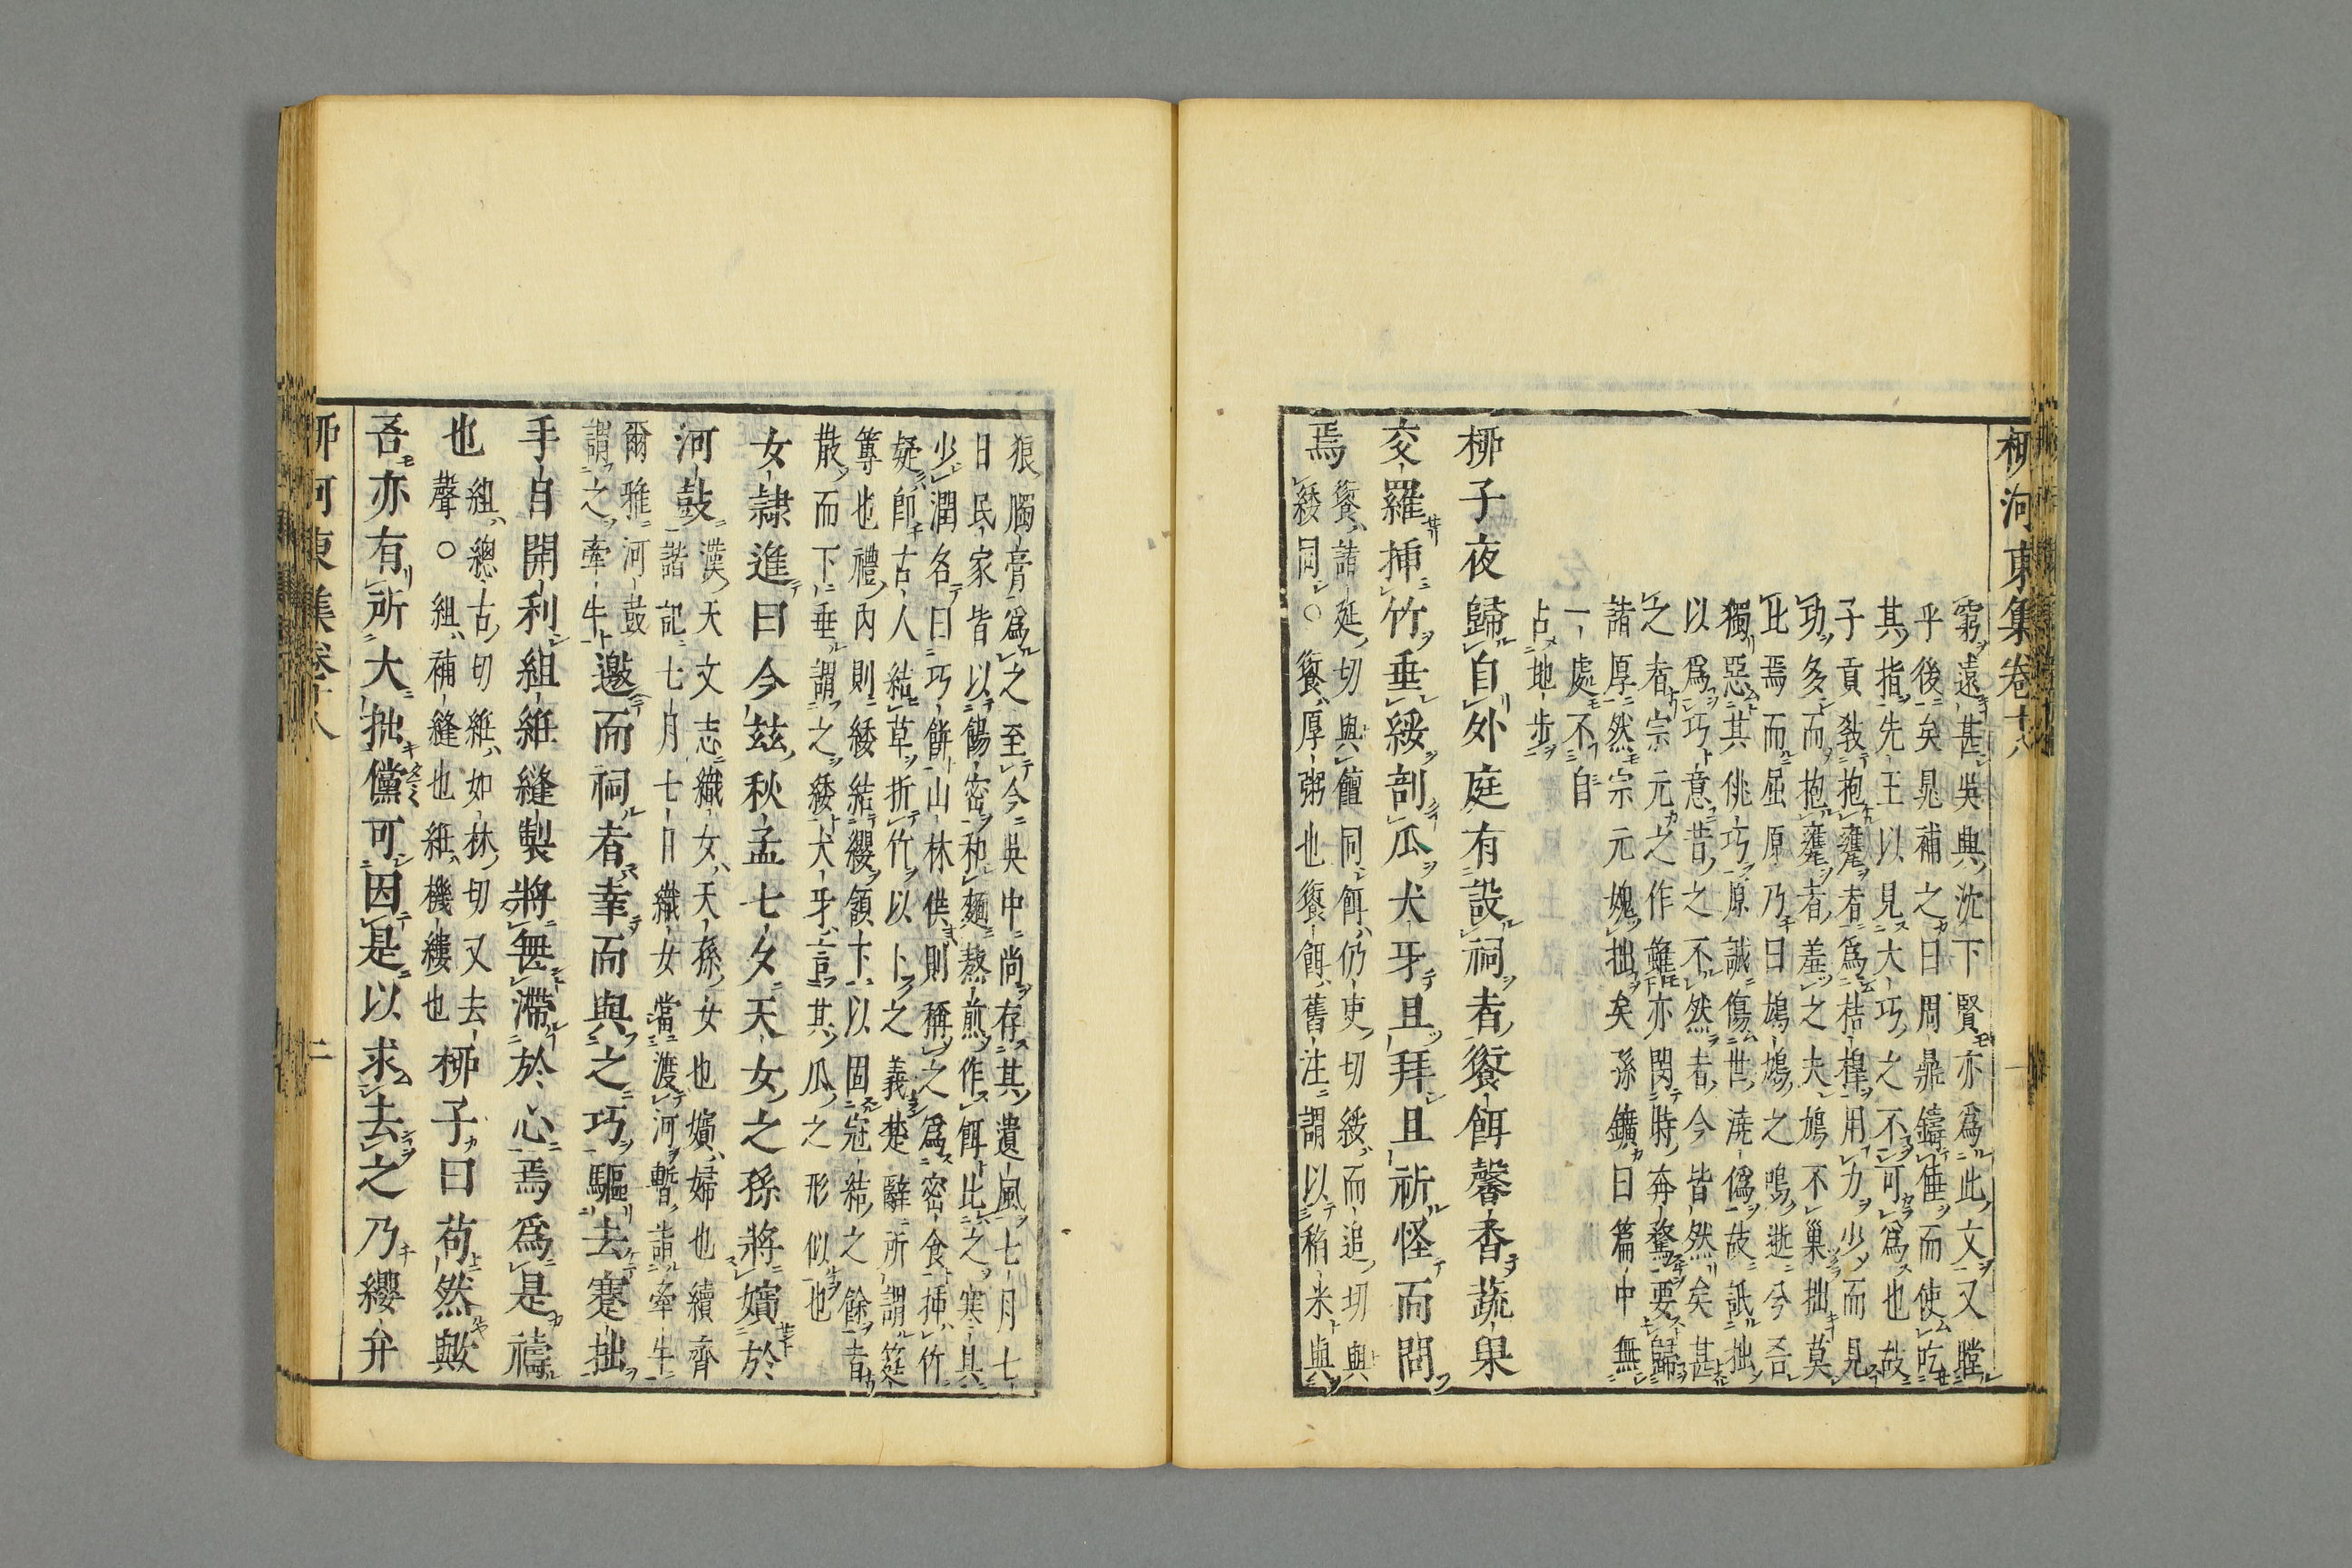 柳河東集卷十八
窮遠甚吳興沈下賢亦爲此文又瞠
乎後矣晁補之曰周鼎鑄倕而使吃
其指先王以見大巧之不可爲也故
子貢教抱甕者爲桔槹用力少而見
功多而抱甕者羞之夫鳩不巢拙莫
此焉而屈原乃曰鳩鳩之鳴逝兮吾
獨惡其佻巧原誠傷世澆僞故詆拙
以爲巧意昔之不然者今皆然矣甚
之者宗元之作雖亦閔時奔騖要歸
諸厚然宗元媿拙矣孫鑛曰篇中無
一處不自
占地步
柳子夜歸自外庭有設祠者饗餌馨香蔬果
交羅挿竹垂綏剖瓜犬牙且拜且祈怪而問
焉
饗諸延切與饘同餌仍吏切綏而追切與
緌同○饗厚粥也饗餌舊注謂以稻米與
狼臅膏爲之至今吳中尚存其遺風七月七
日民家皆以餳密和麵熬煎作餌比之寒具
少潤名曰巧餅山林供則稱之爲密食挿竹
疑卽古人結草折竹以卜之義楚辭所謂筳
篿也禮內則緌結纓領下以固冠結之餘者
散而下垂謂之緌犬牙言其瓜之形似也
女隷進曰今茲秋孟七夕天女之孫將嬪於
河鼓
漢天文志織女天孫女也嬪婦也續齊
諧記七月七日織女當渡河暫詣牽牛
爾雅河鼓
謂之牽牛
邀而祠者幸而與之巧驅去蹇拙
手目開利組絍縫製將無滯於心焉爲是禱
也
組總古切絍如林切又去
聲○組補縫也絍機縷也
柳子曰苟然歟
吾亦有所大拙儻可因是以求去之乃纓弁
柳河東集卷十八
二